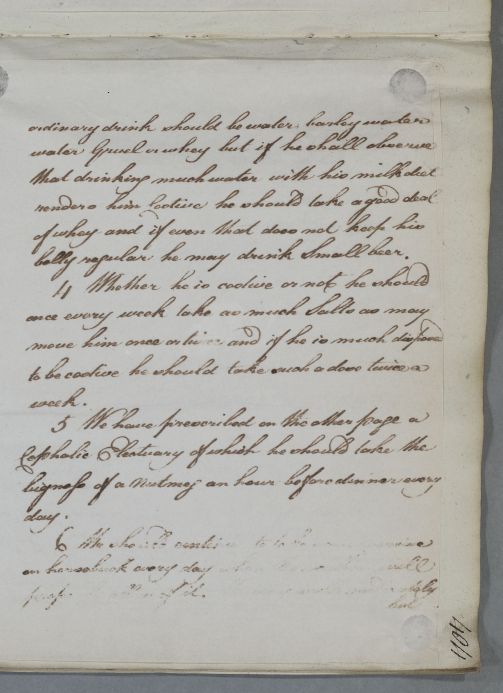 ordinary drink should be water. barley water
water Gruel or whey but if he shall observe
that drinking much water with his milk diet
renders him Costive he should take a good deal
of whey and if even that does not keep his
belly regular he may drink Small beer.
4 Whether he is costive or not he should
once every week take as much Salts as may
move him once or twice and if he is much disposed
to be costive he should take such a dose twice a
week.
5 We have prescribed on the other page a
Cephalic Electuary of which he should take the
bigness of a Nutmeg an hour before dinner every
day.
6 He should continue to take
on horseback every day when will
of it.
but